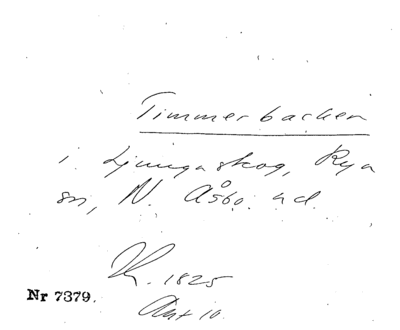 Timmerbacken
i Ljungaskog, Rya
sn, N. Åsbo hd.
1825
Nr 7379.
Akt 10